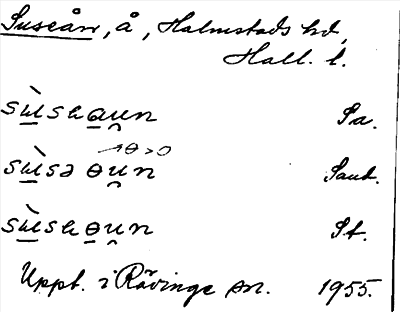 Suseån, å, Halmstads hd,
Hall. l.
sùseaun Sa.
→ө>o
sùsə өun Sand.
sùseөun St.
Uppt. i Rävinge sn. 1955.